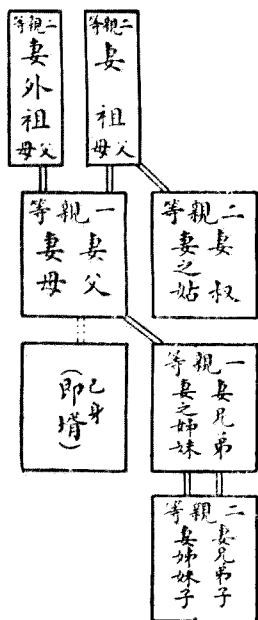 二親等
妻祖父母
二親等
妻外祖父母
二親等
妻叔
妻之姑
一親等
妻父
妻母
一親等
妻兄弟
妻之姊妹
己身
(即壻)
二親等
妻兄弟子
妻姊妹子